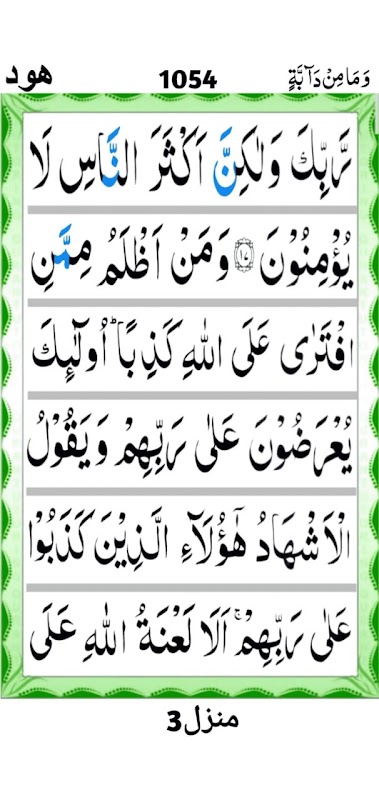 وَمَا مِنْ دَآبَّةٍ 1054 هود
رَّبِّكَ وَلٰكِنَّ اَكْثَرَ النَّاسِ لَا
يُؤْمِنُوْنَ ﴿١٧﴾ وَمَنْ اَظْلَمُ مِمَّنِ
افْتَرٰى عَلَى اللهِ كَذِبًا ؕ اُولٰٓئِكَ
يُعْرَضُوْنَ عَلٰى رَبِّهِمْ وَيَقُوْلُ
الْاَشْهَادُ هٰٓؤُلَآءِ الَّذِيْنَ كَذَبُوْا
عَلٰى رَبِّهِمْ ۚ اَلَا لَعْنَةُ اللهِ عَلَى
منزل3